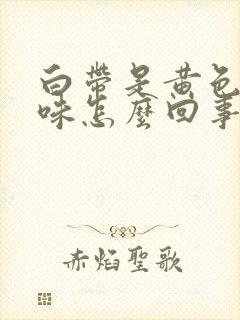 白帶是黃色
味怎麼回事
赤焰聖歌